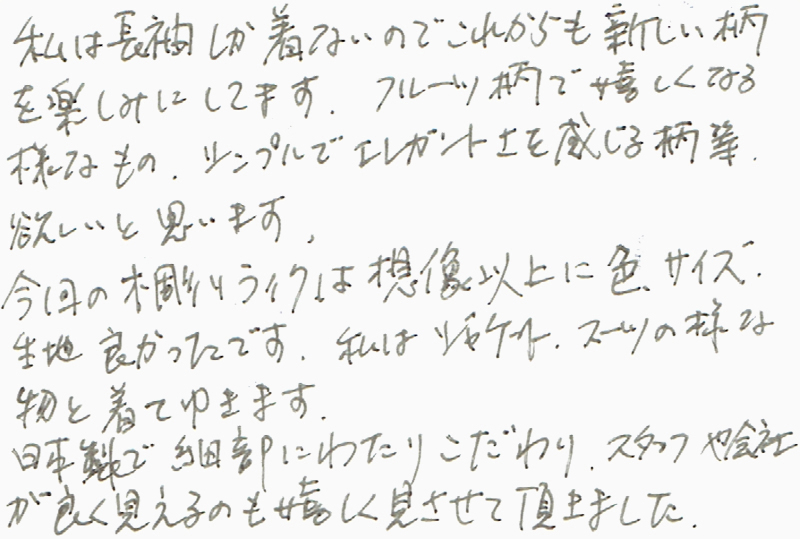 私は長袖しか着ないのでこれからも新しい柄
を楽しみにしてます。フルーツ柄で嬉しくなる
様なもの、シンプルでエレガントさを感じる柄等、
欲しいと思います。
今回の木彫りライクは想像以上に色、サイズ、
生地良かったです。私はジャケット、スーツの様な
物と着てゆきます。
日本製で細部にわたりこだわり、スタッフや会社
が良く見えるのも嬉しく見させて頂きました。